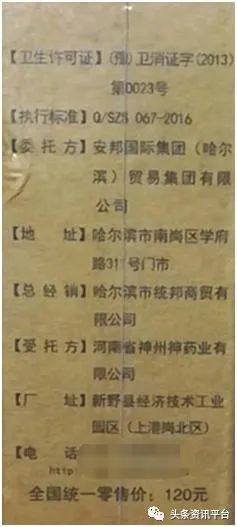 【卫生许可证】(豫)卫消证字(2013)
第0023号
【执行标准】Q/SZS 067-2016
【委托方】安邦国际集团（哈尔
滨）贸易集团有限
公司
【地　　址】哈尔滨市南岗区学府
路31　号门市
【总经销】哈尔滨市统邦商贸有
限公司
【受托方】河南省神州神药业有
限公司
【厂　　址】新野县经济技术工业
园区（上港岗北区）
【电　　话
http
全国统一零售价：120元
头条资讯平台